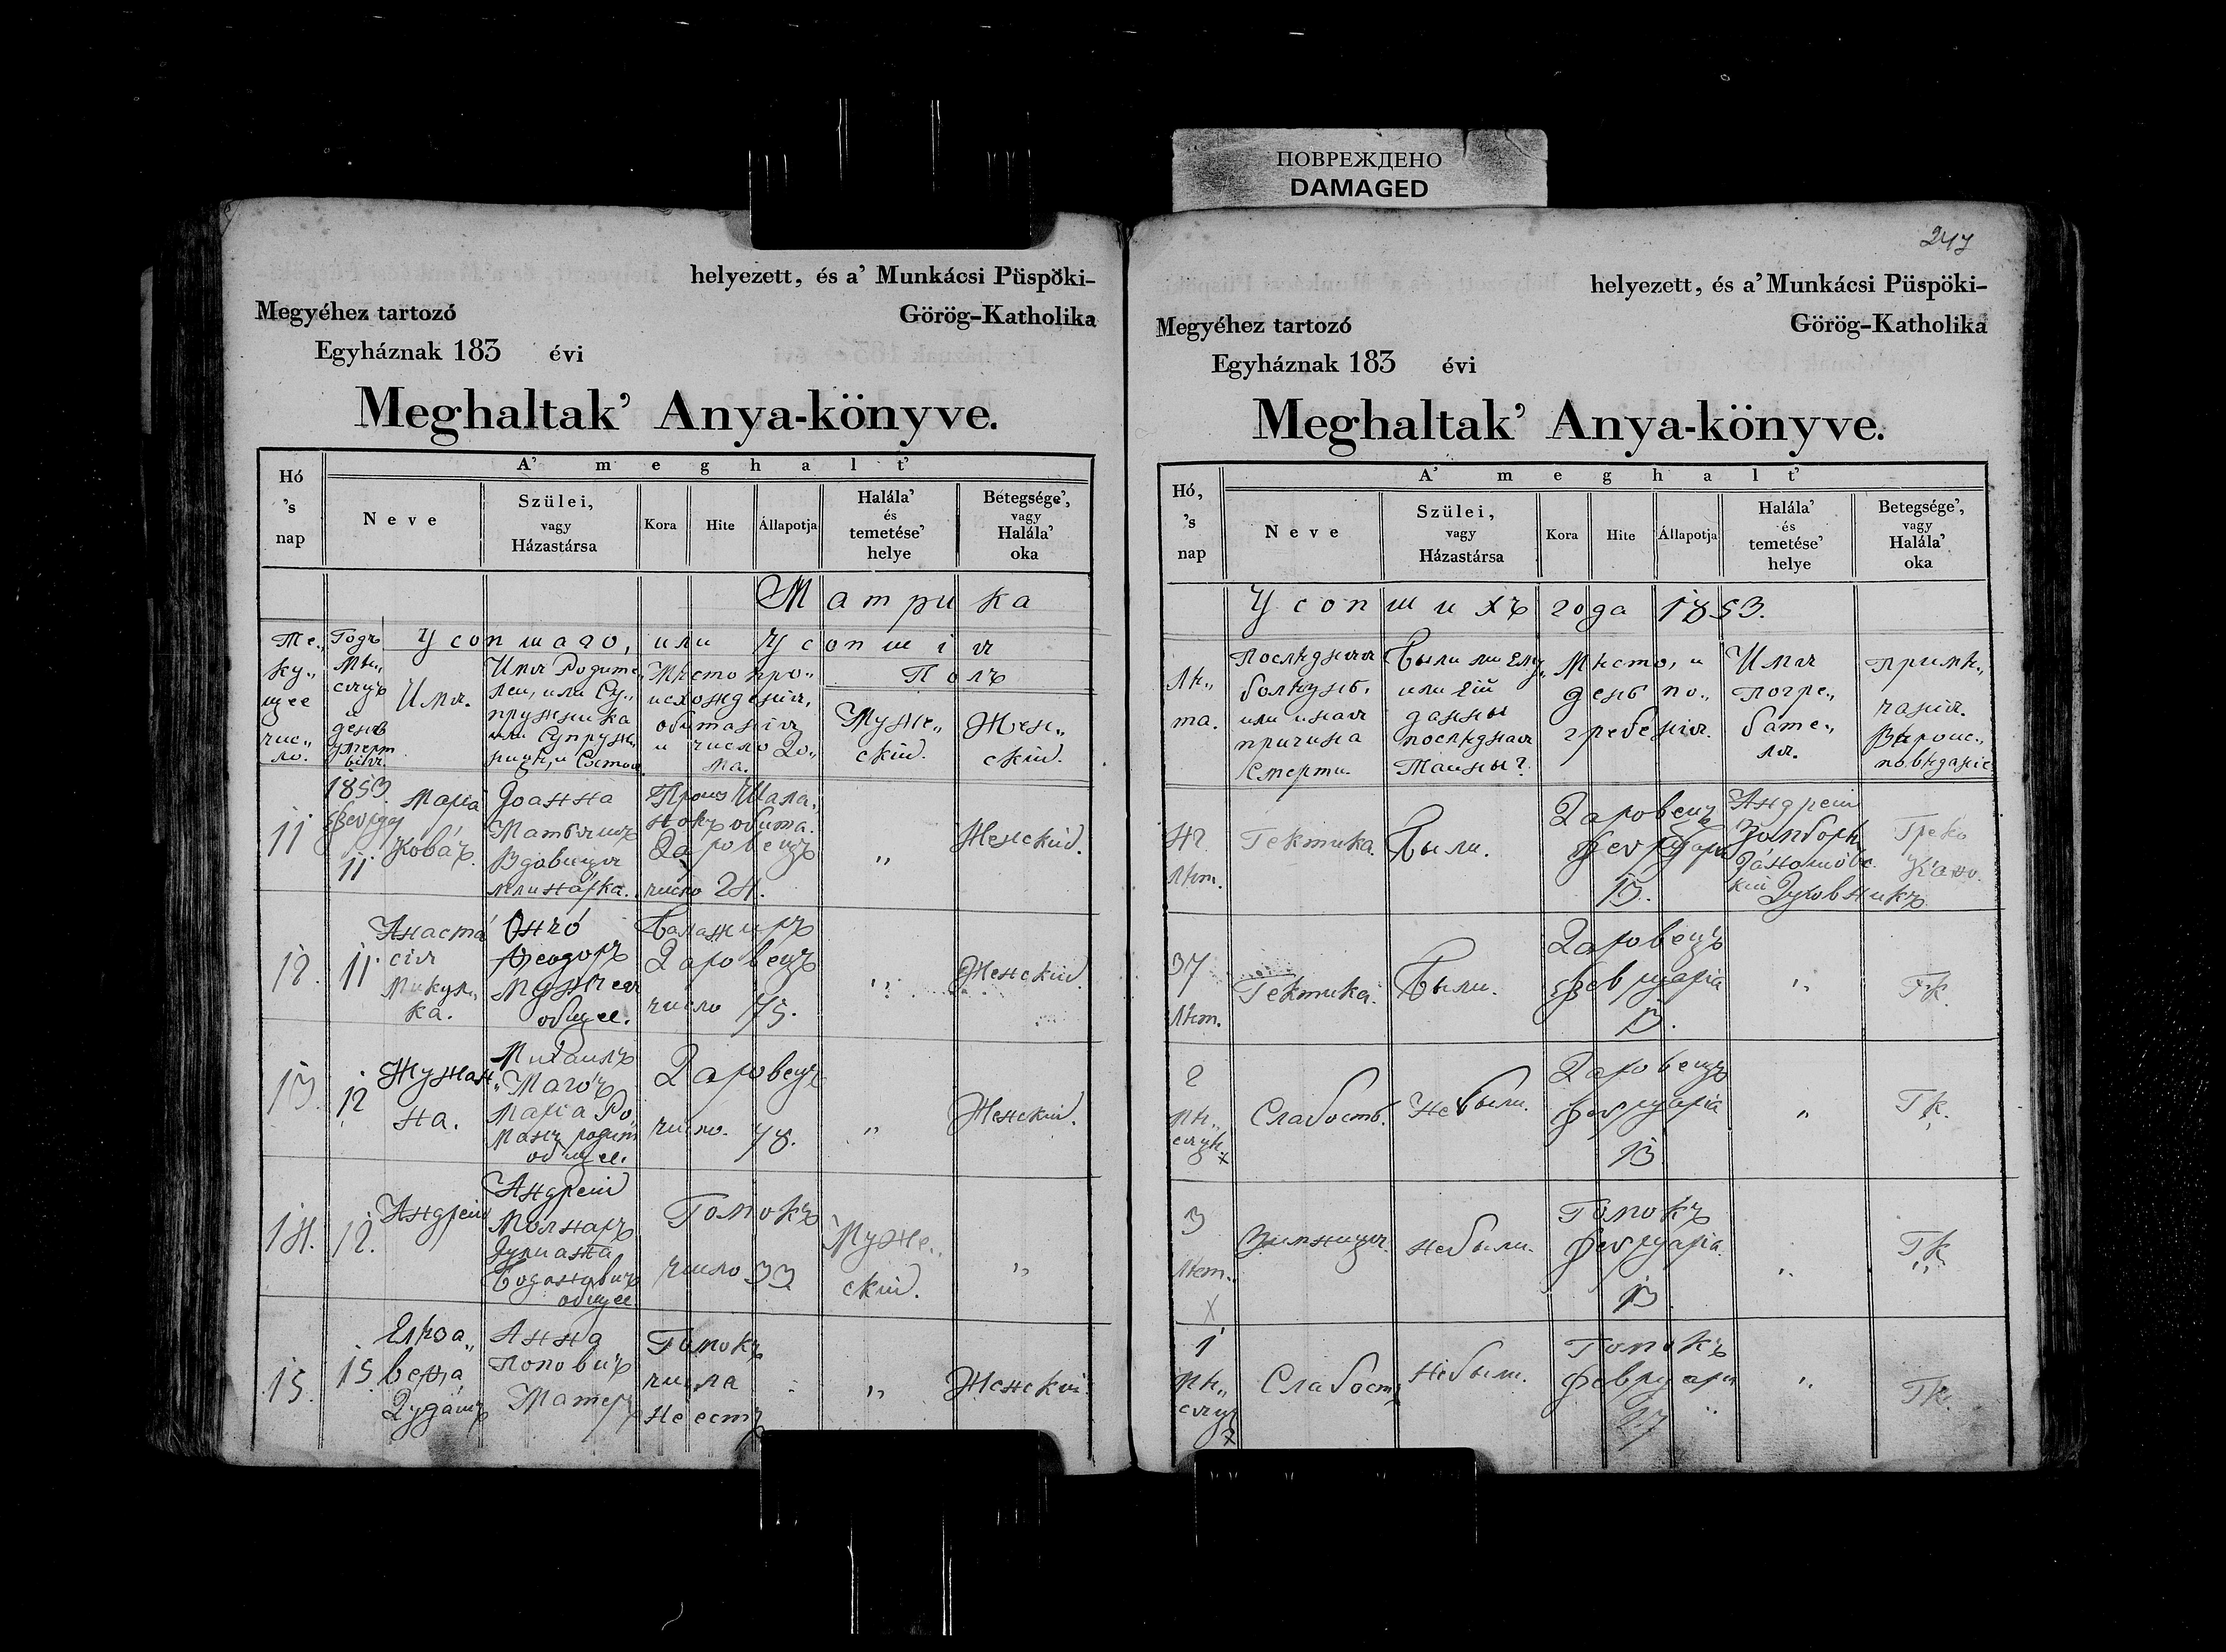 ПОВРЕЖДЕНО
DAMAGED
helyezett, és a' Munkácsi Püspöki-
Megyéhez tartozó Görög-Katholika
Egyháznak 183 évi
Meghaltak' Anya-könyve.
Hó 's nap
A' meghalt'
Neve
Szülei, vagy Házastársa
Kora
Hite
Állapotja
Halála' és temetése' helye
Betegsége', vagy Halála' oka
Матрика
Те„ку„щее чис„ло.
Годъ Мѣ„сяцъ и день умертвія
Усопшаго, или Усопшія
Имя.
Имя Родите„лей, или Су„пружника или Супруж„ницы, и Состоя.
Мѣсто про„исхожденія, обитанія и число До„ма.
Полъ
Муже„скій.
Жен„скій.
11
1853
11
Маріа Ковáчъ.
Іоанна
Вдовица
Даровецъ
число 24.
„
Женскій.
12.
11.
Анастасія Микул„ка.
Ончó Ѳеодоръ
общее.
Даровецъ
число 75.
„
Женскій.
13.
12
Жужан„на.
Михаилъ
Маріа Ро„манъ родит
общее.
Даровецъ
число. 78.
„
Женскій.
14.
12.
Андрей
Андрей
Молнаръ
общее
Гомокъ
число 33
Муже„скій.
„
15.
15
Елиза„вета
Анна
Поповичъ
Матерь
Гомокъ
числа
не естъ
„
Женскій
247
helyezett, és a' Munkácsi Püspöki-
Megyéhez tartozó Görög-Katholika
Egyháznak 183 évi
Meghaltak' Anya-könyve.
Hó, 's nap
A' meghalt'
Neve
Szülei, vagy Házastársa
Kora
Hite
Állapotja
Halála' és temetése' helye
Betegsége', vagy Halála' oka
Усопшихъ года 1853.
Лѣ„та.
Послѣдняя болѣзнь, или иная причина Смерти.
Были ли Ему, или Ей данны послѣдняя Тайны?
Мѣсто, и день по„гребéнія.
Имя Погре„бáте„ля.
Примѣ„чанія. Вѣроис„повѣданіе
Лѣт.
Гектика.
Были.
Даровецъ
13.
Андрей
Духовникъ
Греко Каѳо.
37
Лѣт.
Гектика.
Были.
Даровецъ
фебруаріа
13.
„
ГК.
2
мѣ„сяцѣ. x
Слабость.
Не были.
Даровецъ
фебруаріа
13
„
ГК.
3
Лѣт.
X
Зимница.
не были.
Гомокъ
фебруаріа.
13.
„
ГК
1
мѣ„сяцъ x
Слабость
не были.
Гомокъ
27
„
ГК.